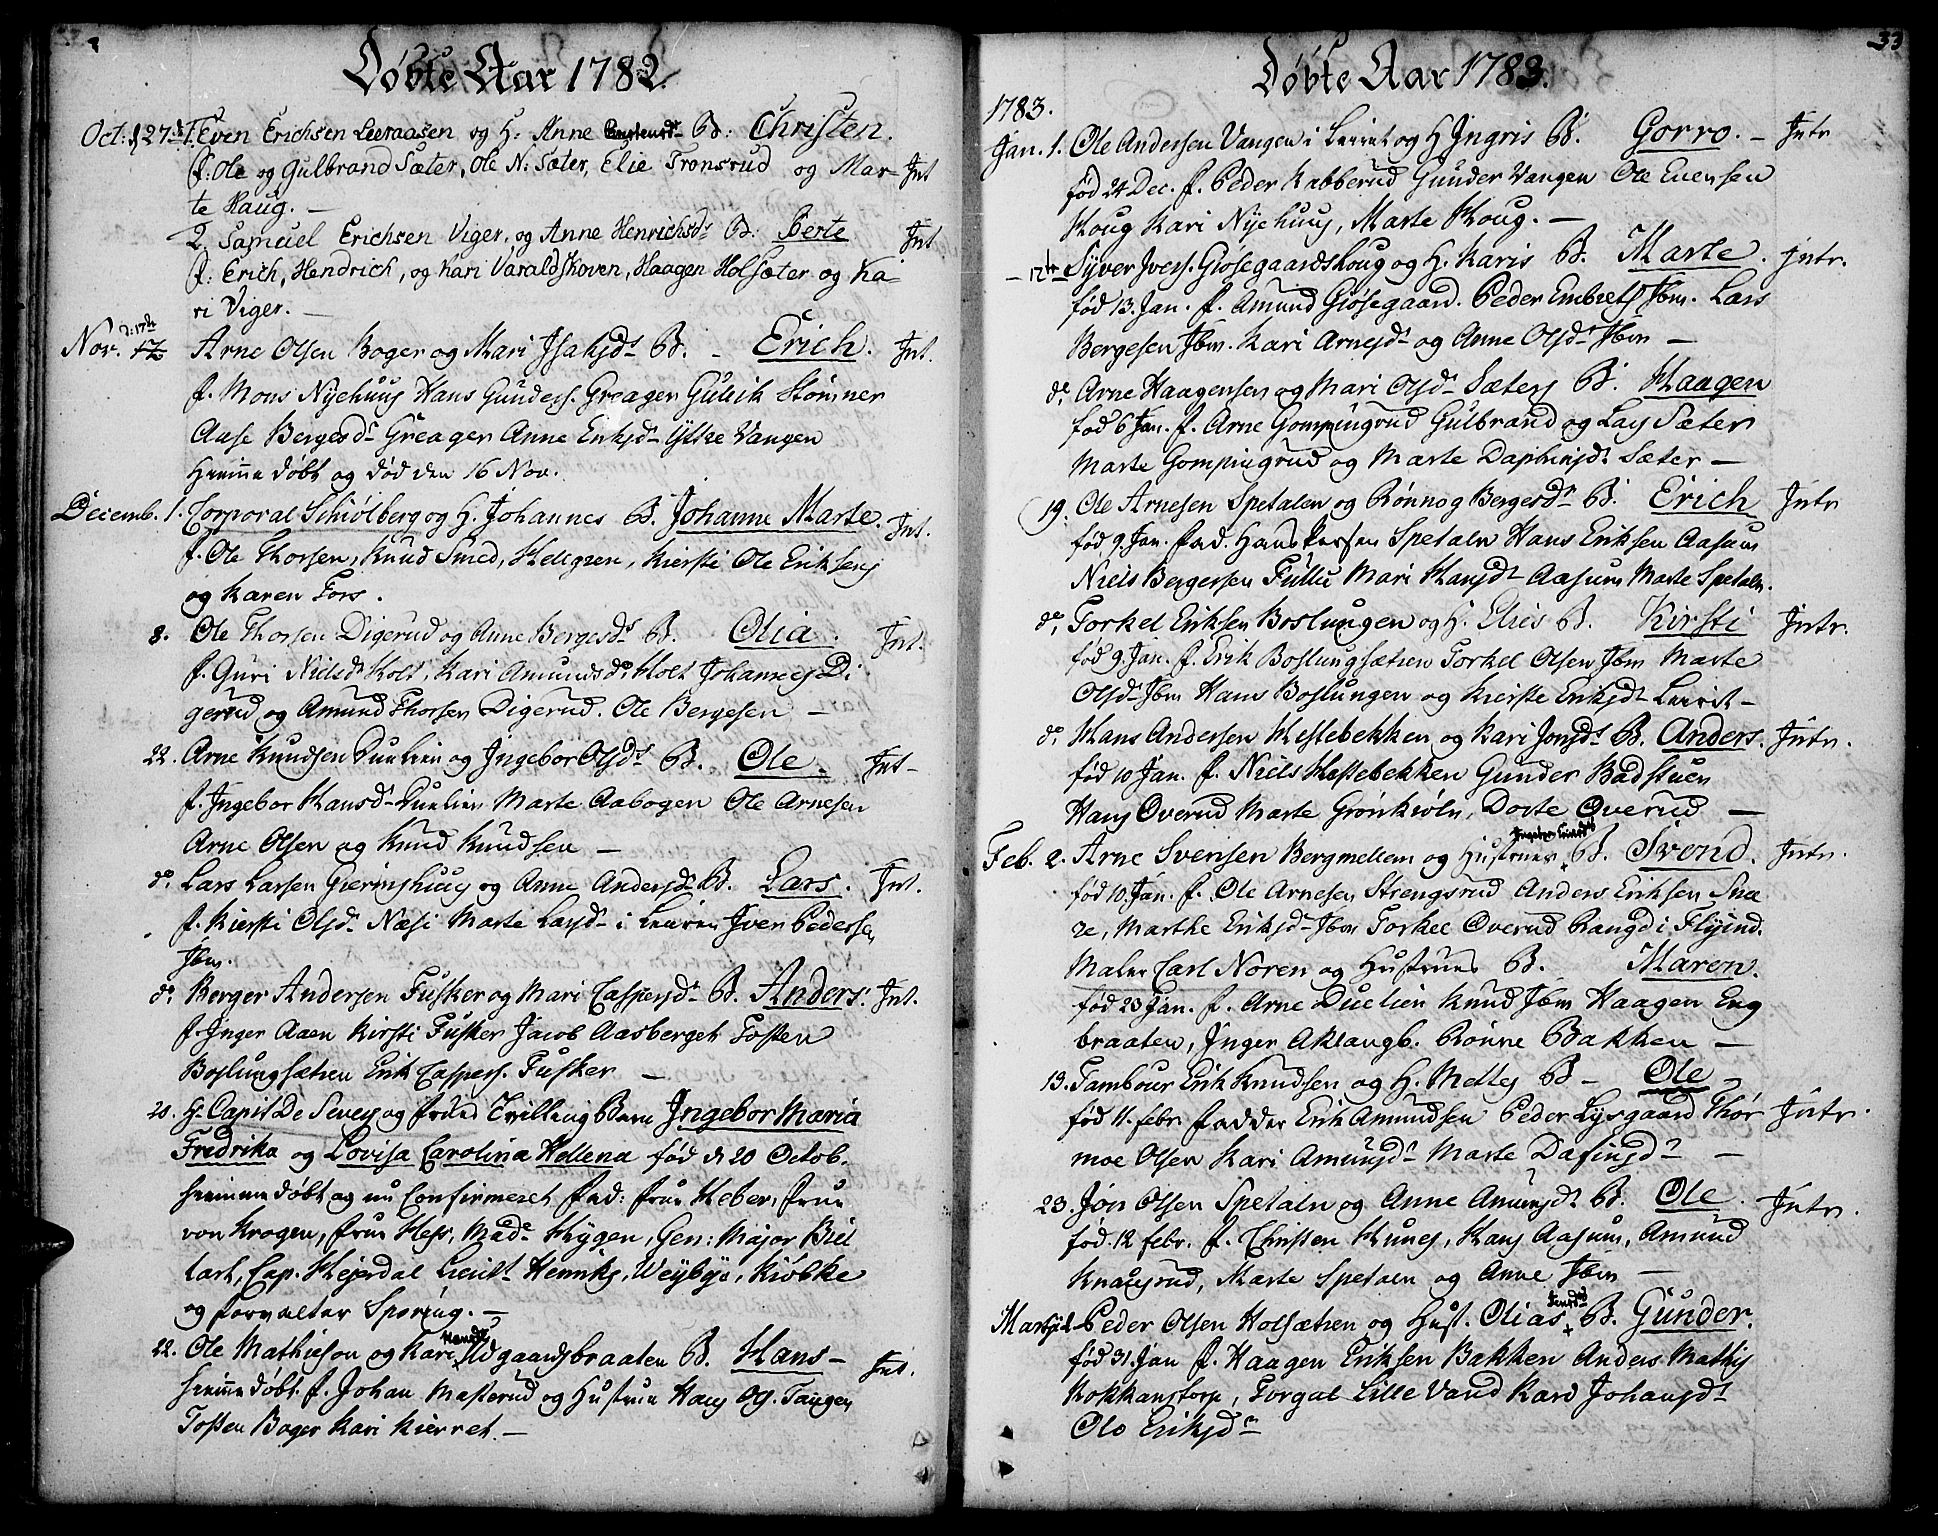 Døbte Aar 1782.
Oct: d 27de 1. Even Erichsen Leeraasen og H. Anne B: Christen.
f: Ole og Gulbrand Sæter, Ole N: Sæter, Elie Tronsrud og Mar- Int
te Haug. —
2. Samuel Erichsen Viger, og Anne Henrichsdr B: Berte Int
f: Erich, Hendrich, og Kari Varaldskoven, Haagen Holsæter og Ka-
ri Viger. —
d: 17de
Nov. 17 Arne Olsen Boger og Mari Isaksdr B. - Erich. Int.
f. Mons Nyehuus Hans Gunders. Greager Gulich Stømner
Aase Bergesdr Greager Anne Eriksdr Ytre Vangen
Hiemme døbt og død den 16 Nov.
Decemb. 1. Corporal Schiølberg og H. Johannes B. Johanne Marte. Int.
f. Ole Thorsen, Knud Smed, Hellgren, Kiersti Ole Eriksens
og Karen Fors.
8. Ole Thorsen Digerud og Anne Bergesdr B. Olia. Int.
f. Guri Nielsdr Holt, Kari Amundsdr Holt Johannes Di
gerud og Amund Thorsen Digerud. Ole Bergesen —
22. Arne Knudsen Duelien og Ingebor Olsdr B. Ole. Int-
f. Ingebor Hansdr Duelien Marte Aabogen Ole Arnesen
Arne Olsen og Knud Knudsen —
do Lars Larsen Gieringhuus og Anne Andersdr B. Lars. Int.
f. Kiersti Olsdr Næsi Marte Larsdr i Leuren Iver Pedersen
Ibm.
do Berger Andersen Fusker og Mari Caspersdr B. Anders. Int.
f. Inger Aaen Kirsti Fusker Jacob Aasberget Tosten
Boslungsætren Erik Caspers. Fusker —
20. Hr Capit De Seves og Frue Tvilling Barn Ingebor Maria
Fredrika og Lovisa Carolina Hellena fød d 20 Octob.
hiemme døbt og nu Confirmeret fad: Frue Heber, Frue
von Krogen, Frue Hess, Made Hygen, Gen: Major Biel
lart, Cap. Hejerdal Lieutt Henriks, Weybye, Kiøbke
og forvalter Sporing. —
Hansdr
22. Ole Mathieson og Kari Udgaardsbraaten B. Hans - Int.
hiemme døbt. f. Johan Masterud og Hustrue Hans Ols. Tangen
Tosten Boger Kari Kierret. —
33
Døbte Aar 1783.
1783.
Jan. 1. Ole Andersen Vangen i Leiret og H Ingris B. Gorro. - Intr
fød 24 Dec. f. Peder Kabberud Gunder Vangen Ole Evensen
Houg Kari Nyehuus, Marte Houg. —
- 12te Syver Ivers. Giøsegaardshoug og H. Karis B. Marte. Intr.
fød 13. Jan. f. Amund Giøsegaard. Peder Embrets Ibm. Lars
Bergesen Ibm. Kari Arnesdr og Anne Olsdr Ibm —
do. Arne Haagensen og Mari Olsdr Sæters B. Haagen
fød 6 Jan. f. Arne Gompingrud Gulbrand og Lars Sæter
Marte Gompingrud og Marte Daphinsdr Sæter —
19. Ole Arnesen Spetalen og Rønnog Bergesdr B. Erich Intr
fød 9. Jan. Fad. Hans Spetalen Hans Eriksen Aasum
Niels Bergersen Fullu Mari Hansdr Aasum Marte Spetalen.
do, Torkel Eriksen Boslungen og H. Elies B. Kirsti Intr.
fød 9. Jan. f. Erik Boslungsætren Torkel Olsen Ibm Marte
Olsdr Ibm Hans Boslungen og Kierste Eriksdr Leiret -
do. Hans Andersen Hestebekken og Kari Jonsdr B. Anders. Intr.
fød 10 Jan. f. Niels Hastebekken Gunder Badstuen
Hans Overud Marte Grønkiøln, Dorte Overud —
Feb. 2. Arne Svensen Bergmellem og Hustrues B. Svend. Intr.
fød 10. Jan. f. Ole Arnesen Strengsrud Anders Eriksen Sna
re, Marthe Eriksdr Ibm Torkel Overud Rangdi Flyind.
Maler Carl Noren og Hustrues B. Maren.
fød 23 Jan. f. Arne Duelien Knud Ibm Haagen Eng
braaten, Inger Aklangb. Rønne Bakken —
13. Tambour Erik Knudsen og H. Mettes B - Ole -
fød 11. febr Fadder Erik Amundsen Peder Lysgaard Thor Intr.
moe Olsen Kari Amundsdr Marte Dafinsdr —
23. Jon Olsen Spetalen og Anne Amunsdr B. Ole. Intr.
fød. 12 febr. f. Christen Hunes, Hans Aasum, Amund
Knausrud, Marte Spetalen og Anne Ibm —
Peder Olsen Holsætren og Hust. Olias B. Gunder.
fød 31 Jan f. Haagen Eriksen Bakken Anders Mathis
Kokkanstorp, Torgal Lille Vand Kari Johansdr
Ole Eriksdr